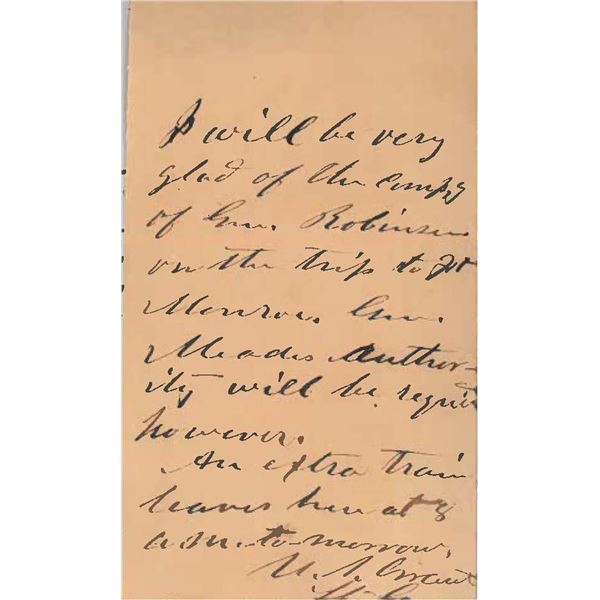 I will be very
glad of the compy
of Gen. Robinson
on the trip to Ft
Monroe. Gen.
Meades Author-
ity will be requir
however.
An extra train
leaves here at 8
a.m. to-morrow.
U. S. Grant
Lt. G